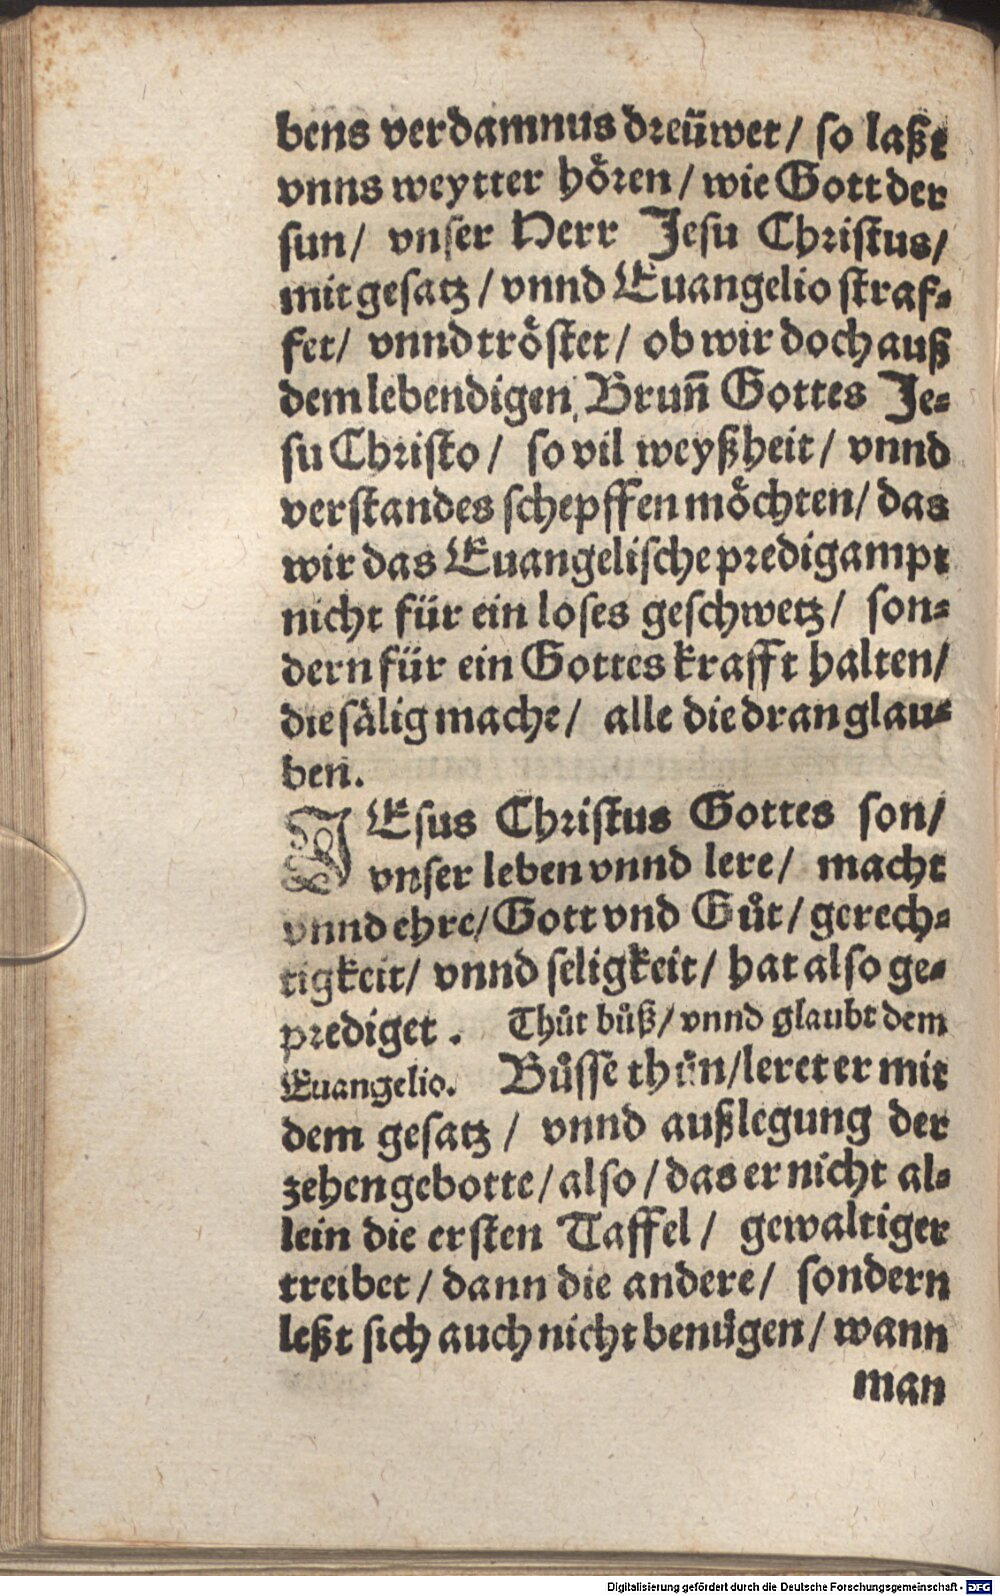 bens verdamnus dreüwet / so laßt
vnns weytter hören / wie Gott der
sun / vnser Herr Jesu Christus /
mit gesatz / vnnd Euangelio straf-
fet / vnnd tröstet / ob wir doch auß
dem lebendigen Brun̄ Gottes Je-
su Christo / so vil weyßheit / vnnd
verstandes schepffen möchten / das
wir das Euangelische predigampt
nicht für ein loses geschwetz / son-
dern für ein Gottes krafft halten /
die sälig mache / alle die dran glau-
ben.
JEsus Christus Gottes son /
vnser leben vnnd lere / macht
vnnd ehre / Gott vnd Gůt / gerech-
tigkeit / vnnd seligkeit / hat also ge-
prediget . Thůt bůß / vnnd glaubt dem
Euangelio. Bůsse thůn / leret er mit
dem gesatz / vnnd außlegung der
zehen gebotte / also / das er nicht al-
lein die ersten Taffel / gewaltiger
treibet / dann die andere / sondern
leßt sich auch nicht benügen / wann
man
Digitalisierung gefördert durch die Deutsche Forschungsgemeinschaft - DFG